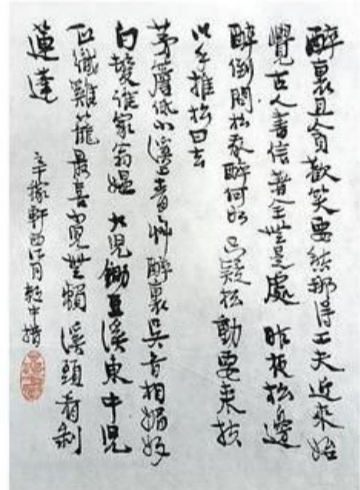 醉裏且貪歡笑要愁那得工夫近來始
覺古人書信著全無是處 昨夜松邊
醉倒問松我醉何如只疑松動要來扶
以手推松曰去
茅簷低小溪上青草醉裏吳音相媚好
白髮誰家翁媼 大兒鋤豆溪東中兒
正織雞籠最喜小兒無賴 溪頭看剝
蓮蓬
辛稼軒西江月